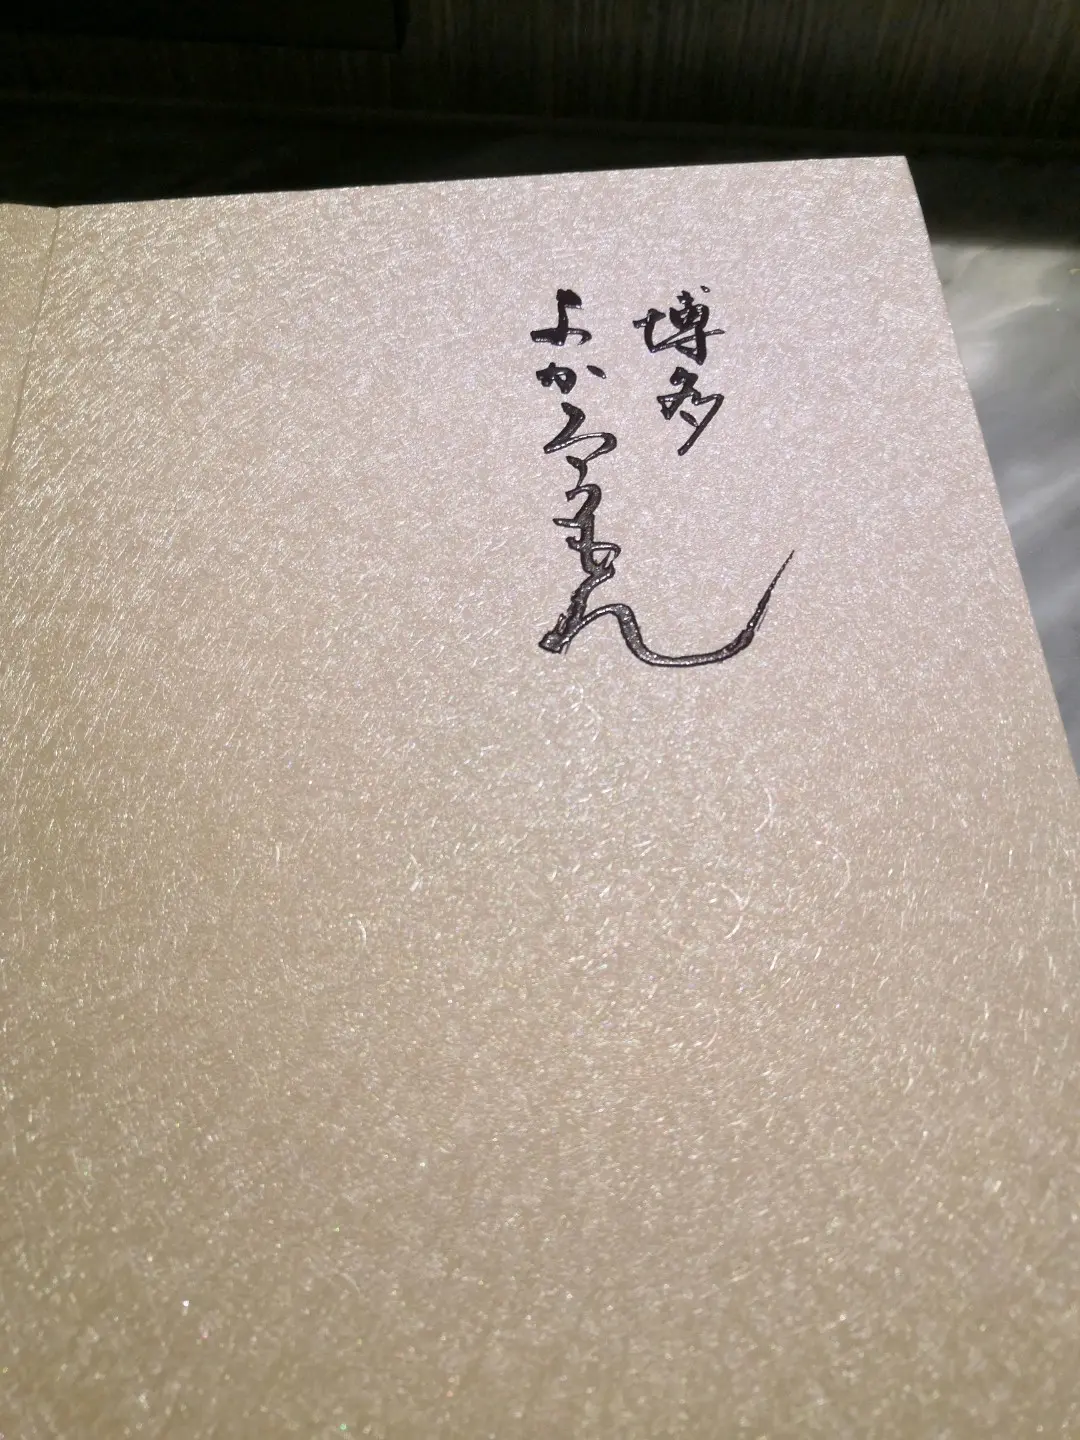 博多
よかろうもん